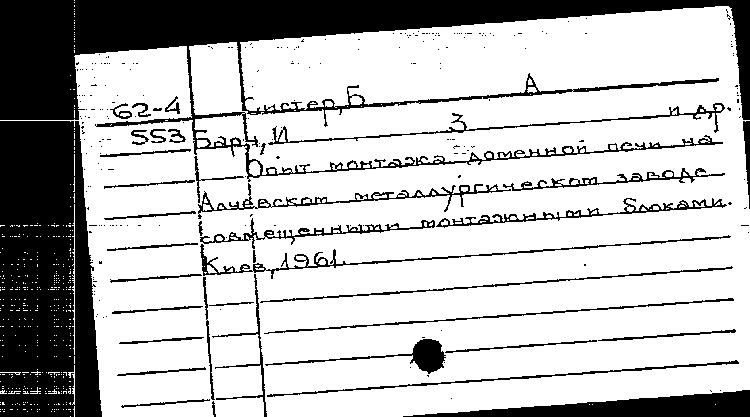 62-4 Систер, Б А
553 Барн, И З и др.
Опыт монтажа доменной печи на
Алчевском металлургическом заводе
совмещенными монтажными блоками.
Киев, 1961.